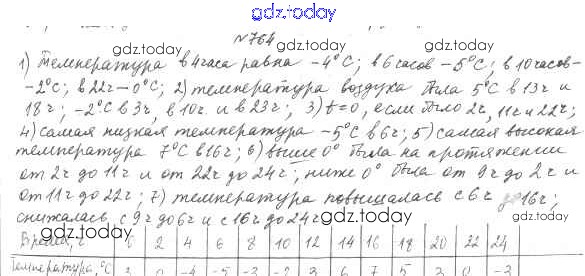 gdz.today
№764
1) Температура в 4 часа равна -4°С; в 6 часов -5°С; в 10 часов-
-2°С; в 22ч - 0°С; 2) температура воздуха была 5°С в 13ч и
18ч; -2°С в 3ч, в 10ч. и в 23ч; 3) t=0, если было 2ч, 11ч и 22ч;
4) самая низкая температура -5°С в 6ч; 5) самая высокая
температура 7°С в 16ч; 6) выше 0° была на протяжении
от 2ч до 11ч и от 22ч до 24ч; ниже 0° была от 9ч до 2ч и
от 11ч до 22ч; 7) температура повышалась с 6ч до 16ч;
снижалась с 9ч до 6ч и с 16ч до 24ч
gdz.today
Время, ч 0 2 4 6 8 10 12 14 16 18 20 22 24
Температура, °С 0 -4 -5 -3 -2 3 6 7 5 3 0 -3